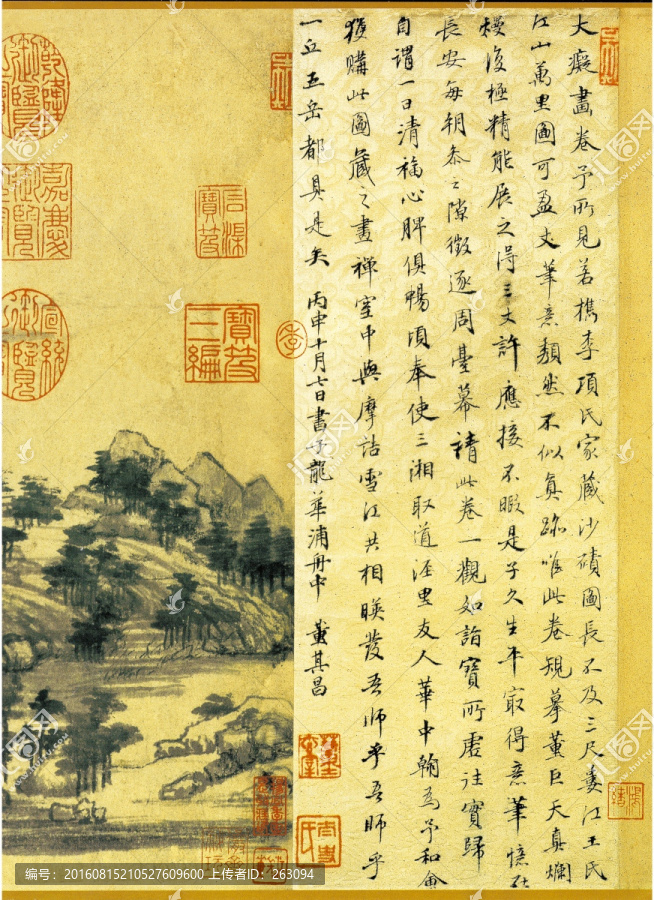 大癡畫卷予所見若檇李項氏家藏沙磧圖長不及三尺婁江王氏
江山萬里圖可盈丈筆意頹然不似真跡唯此卷規摹董巨天真爛
熳復極精能展之得三丈許應接不暇是子久生平最得意筆憶在
長安每朝參之隙徵逐周臺幕請此卷一觀如詣寶所虛往實歸
自謂一日清福心脾俱暢頃奉使三湘取道涇里友人華中翰為予和會
獲購此圖藏之畫禪室中與摩詰雪江共相暎發吾師乎吾師乎
一丘五岳都具是矣丙申十月七日書于龍華浦舟中 董其昌
季
石渠寶笈
寶笈三編
乾隆御覽
嘉慶御覽
宣統御覽
编号:20160815210527609600 上传者ID:263094
汇图网